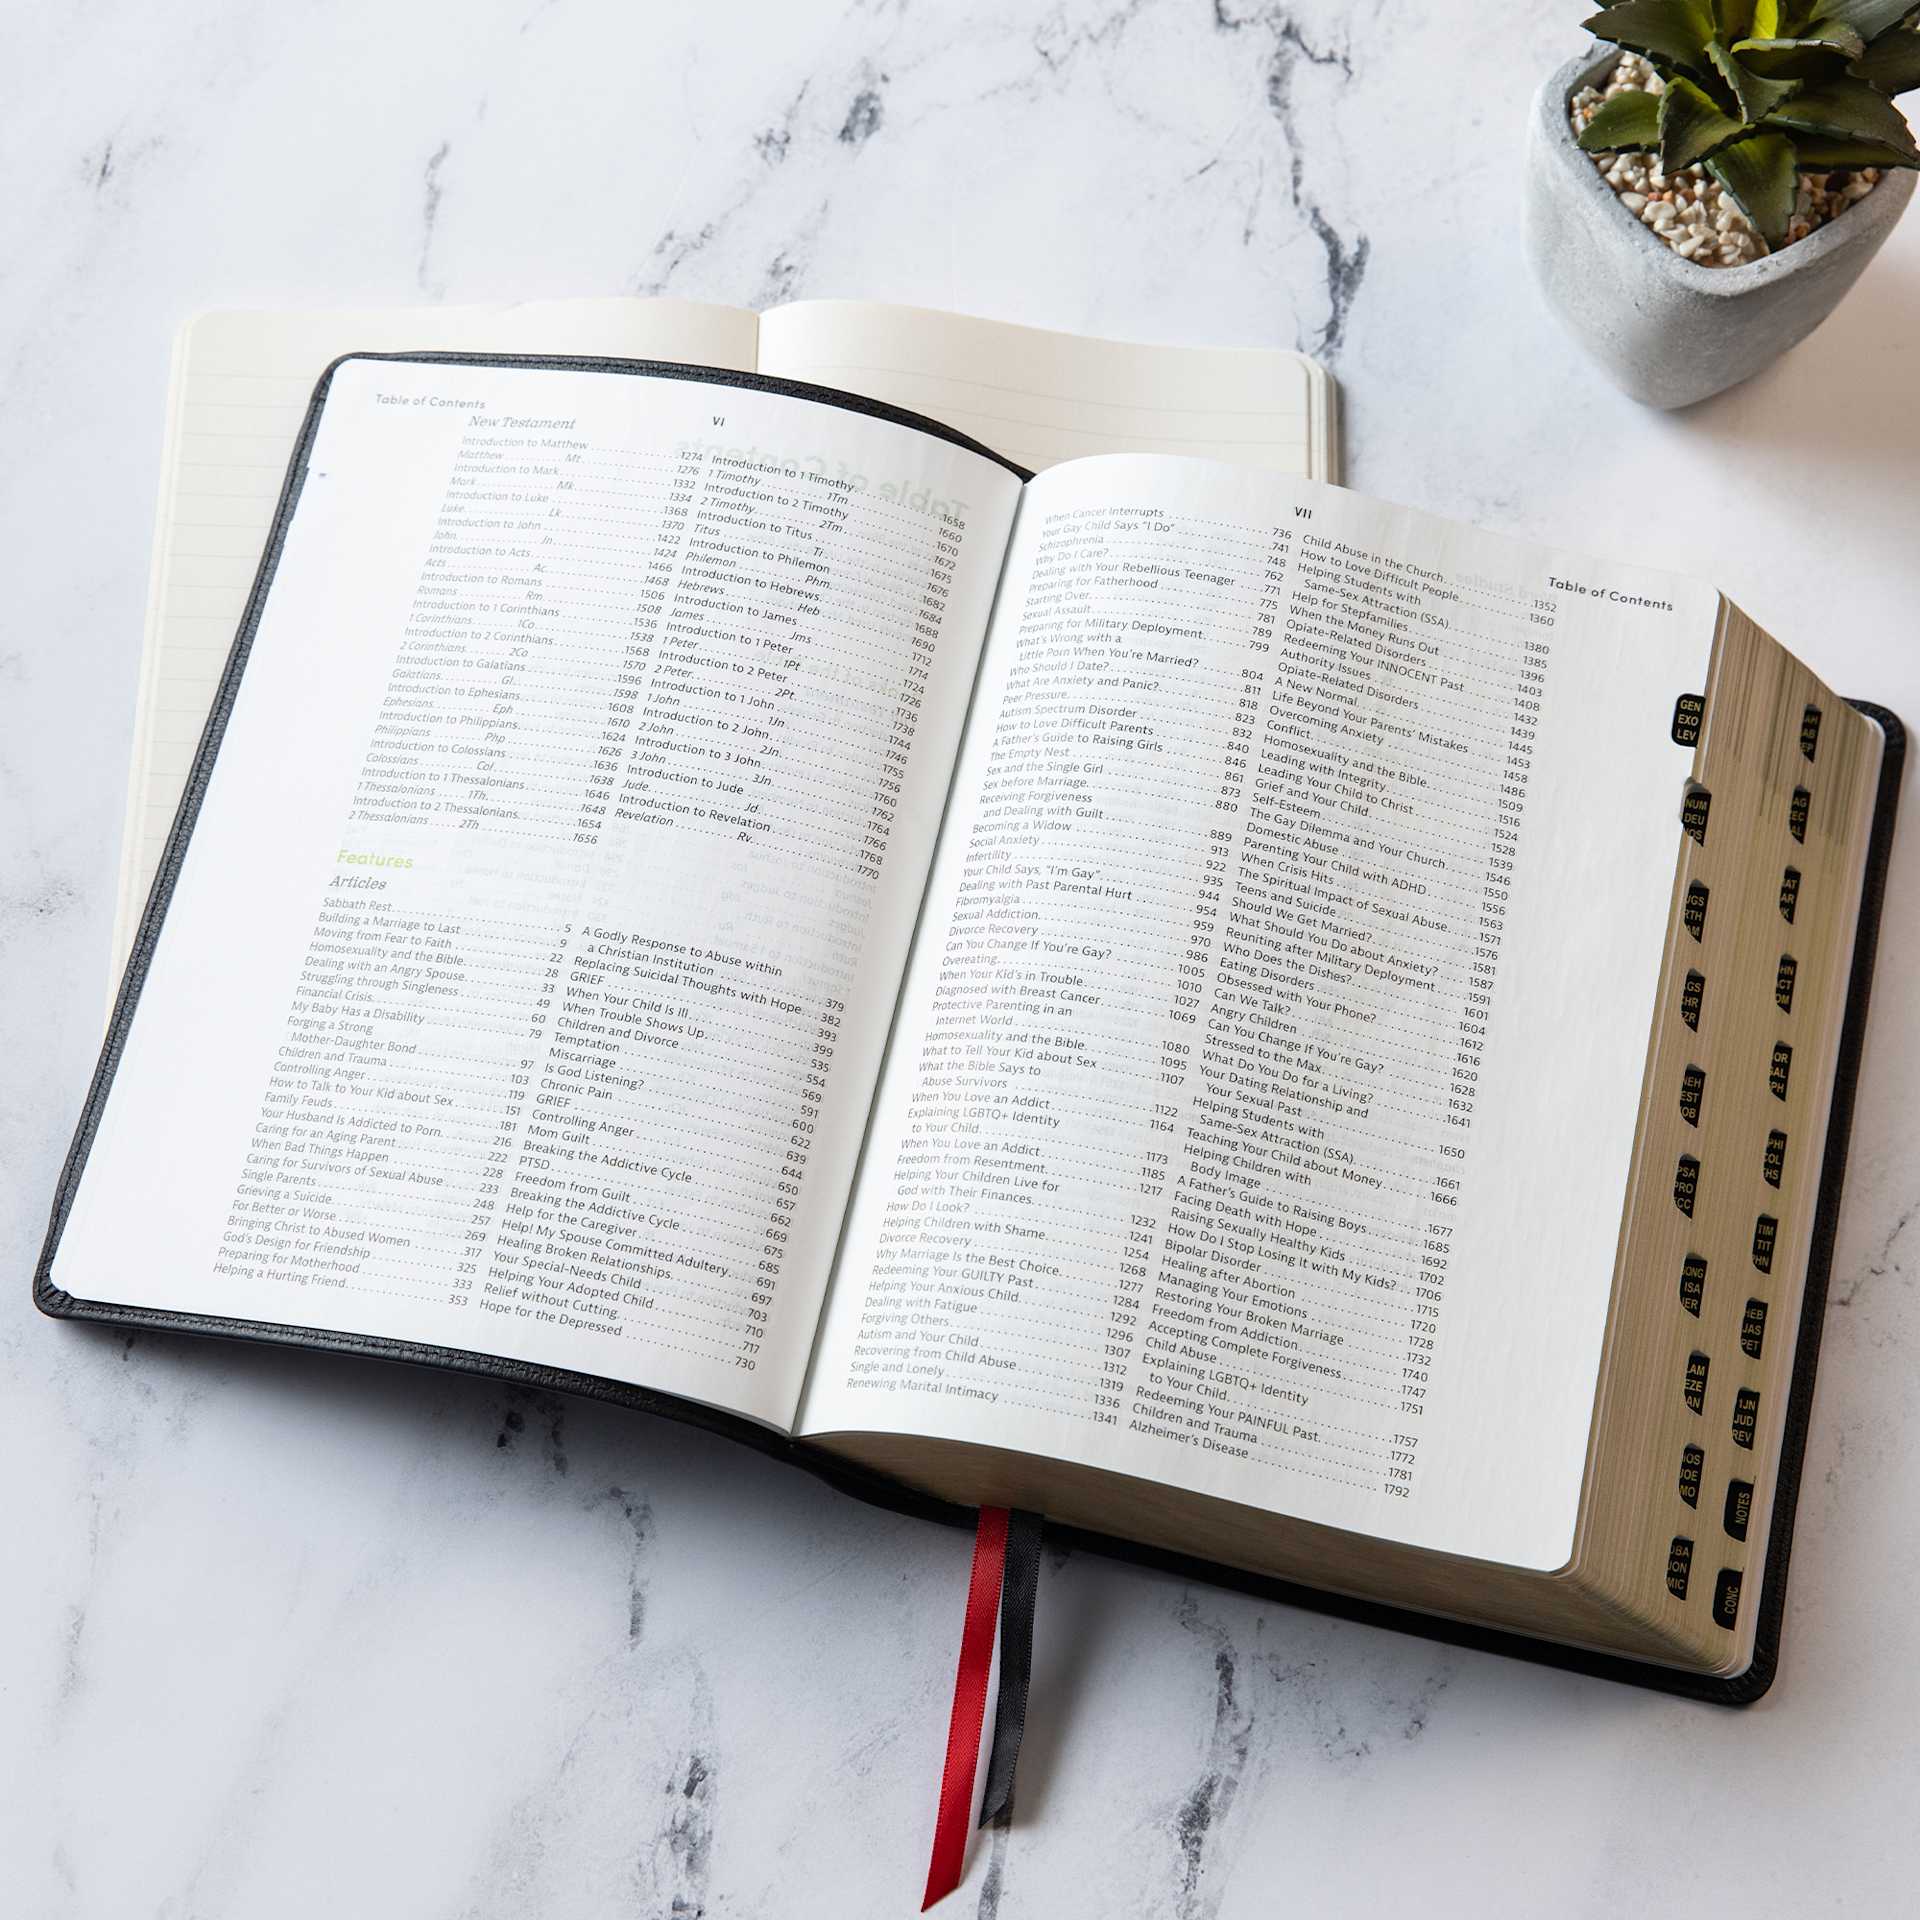 Table of Contents
VI
New Testament
Introduction to Matthew 1274
Matthew Mt 1276
Introduction to Mark 1332
Mark Mk 1334
Introduction to Luke 1368
Luke Lk 1370
Introduction to John 1422
John Jn 1424
Introduction to Acts 1466
Acts Ac 1468
Introduction to Romans 1506
Romans Rm 1508
Introduction to 1 Corinthians 1536
1 Corinthians 1Co 1538
Introduction to 2 Corinthians 1568
2 Corinthians 2Co 1570
Introduction to Galatians 1596
Galatians Gl 1598
Introduction to Ephesians 1608
Ephesians Eph 1610
Introduction to Philippians 1624
Philippians Php 1626
Introduction to Colossians 1636
Colossians Col 1638
Introduction to 1 Thessalonians 1646
1 Thessalonians 1Th 1648
Introduction to 2 Thessalonians 1654
2 Thessalonians 2Th 1656
Introduction to 1 Timothy 1658
1 Timothy 1Tm 1660
Introduction to 2 Timothy 1670
2 Timothy 2Tm 1672
Introduction to Titus 1675
Titus Ti 1676
Introduction to Philemon 1682
Philemon Phm 1684
Introduction to Hebrews 1688
Hebrews Heb 1690
Introduction to James 1712
James Jms 1714
Introduction to 1 Peter 1724
1 Peter 1Pt 1726
Introduction to 2 Peter 1736
2 Peter 2Pt 1738
Introduction to 1 John 1744
1 John 1Jn 1746
Introduction to 2 John 1755
2 John 2Jn 1756
Introduction to 3 John 1760
3 John 3Jn 1762
Introduction to Jude 1764
Jude Jd 1766
Introduction to Revelation 1768
Revelation Rv 1770
Features
Articles
Sabbath Rest 5
Building a Marriage to Last 9
Moving from Fear to Faith 22
Homosexuality and the Bible 28
Dealing with an Angry Spouse 33
Struggling through Singleness 49
Financial Crisis 60
My Baby Has a Disability 79
Forging a Strong
Mother-Daughter Bond 97
Children and Trauma 103
Controlling Anger 119
How to Talk to Your Kid about Sex 151
Family Feuds 181
Your Husband Is Addicted to Porn 216
Caring for an Aging Parent 222
When Bad Things Happen 228
Caring for Survivors of Sexual Abuse 233
Single Parents 248
Grieving a Suicide 257
For Better or Worse 269
Bringing Christ to Abused Women 317
God's Design for Friendship 325
Preparing for Motherhood 333
Helping a Hurting Friend 353
A Godly Response to Abuse within
a Christian Institution 379
Replacing Suicidal Thoughts with Hope 382
GRIEF 393
When Your Child Is Ill 399
When Trouble Shows Up 535
Children and Divorce 554
Temptation 569
Miscarriage 591
Is God Listening? 600
Chronic Pain 622
GRIEF 639
Controlling Anger 644
Mom Guilt 650
Breaking the Addictive Cycle 657
PTSD 662
Freedom from Guilt 669
Breaking the Addictive Cycle 675
Help for the Caregiver 685
Help! My Spouse Committed Adultery 691
Healing Broken Relationships 697
Your Special-Needs Child 703
Helping Your Adopted Child 710
Relief without Cutting 717
Hope for the Depressed 730
VII
Table of Contents
When Cancer Interrupts 736
Your Gay Child Says "I Do" 741
Schizophrenia 748
Why Do I Care? 762
Dealing with Your Rebellious Teenager 771
Preparing for Fatherhood 775
Starting Over 781
Sexual Assault 789
Preparing for Military Deployment 799
What's Wrong with a
Little Porn When You're Married? 804
Who Should I Date? 811
What Are Anxiety and Panic? 818
Peer Pressure 823
Autism Spectrum Disorder 832
How to Love Difficult Parents 840
A Father's Guide to Raising Girls 846
The Empty Nest 861
Sex and the Single Girl 873
Sex before Marriage 880
Receiving Forgiveness
and Dealing with Guilt 889
Becoming a Widow 913
Social Anxiety 922
Infertility 935
Your Child Says, "I'm Gay" 944
Dealing with Past Parental Hurt 954
Fibromyalgia 959
Sexual Addiction 970
Divorce Recovery 986
Can You Change If You're Gay? 1005
Overeating 1010
When Your Kid's in Trouble 1027
Diagnosed with Breast Cancer 1069
Protective Parenting in an
Internet World 1080
Homosexuality and the Bible 1095
What to Tell Your Kid about Sex 1107
What the Bible Says to
Abuse Survivors 1122
When You Love an Addict 1164
Explaining LGBTQ+ Identity
to Your Child 1173
When You Love an Addict 1185
Freedom from Resentment 1217
Helping Your Children Live for
God with Their Finances 1232
How Do I Look? 1241
Helping Children with Shame 1254
Divorce Recovery 1268
Why Marriage Is the Best Choice 1277
Redeeming Your GUILTY Past 1284
Helping Your Anxious Child 1292
Dealing with Fatigue 1296
Forgiving Others 1307
Autism and Your Child 1312
Recovering from Child Abuse 1319
Single and Lonely 1336
Renewing Marital Intimacy 1341
Child Abuse in the Church 1352
How to Love Difficult People 1360
Helping Students with
Same-Sex Attraction (SSA) 1380
Help for Stepfamilies 1385
When the Money Runs Out 1396
Opiate-Related Disorders 1403
Redeeming Your INNOCENT Past 1408
Authority Issues 1432
Opiate-Related Disorders 1439
A New Normal 1445
Life Beyond Your Parents' Mistakes 1453
Overcoming Anxiety 1458
Conflict 1486
Homosexuality and the Bible 1509
Leading with Integrity 1516
Leading Your Child to Christ 1524
Grief and Your Child 1528
Self-Esteem 1539
The Gay Dilemma and Your Church 1546
Domestic Abuse 1550
Parenting Your Child with ADHD 1556
When Crisis Hits 1563
The Spiritual Impact of Sexual Abuse 1571
Teens and Suicide 1576
Should We Get Married? 1581
What Should You Do about Anxiety? 1587
Reuniting after Military Deployment 1591
Who Does the Dishes? 1601
Eating Disorders 1604
Obsessed with Your Phone? 1612
Can We Talk? 1616
Angry Children 1620
Can You Change If You're Gay? 1628
Stressed to the Max 1632
What Do You Do for a Living? 1641
Your Dating Relationship and
Your Sexual Past 1650
Helping Students with
Same-Sex Attraction (SSA) 1661
Teaching Your Child about Money 1666
Helping Children with
Body Image 1677
A Father's Guide to Raising Boys 1685
Facing Death with Hope 1692
Raising Sexually Healthy Kids 1702
How Do I Stop Losing It with My Kids? 1706
Bipolar Disorder 1715
Healing after Abortion 1720
Managing Your Emotions 1728
Restoring Your Broken Marriage 1732
Freedom from Addiction 1740
Accepting Complete Forgiveness 1747
Child Abuse 1751
Explaining LGBTQ+ Identity
to Your Child 1757
Redeeming Your PAINFUL Past 1772
Children and Trauma 1781
Alzheimer's Disease 1792
GEN
EXO
LEV
NUM
DEU
PSA
PRO
ISA
PHI
COL
TIM
TIT
HEB
JAS
PET
LAM
EZE
1JN
JUD
REV
JOE
NOTES
JON
MIC
CONC